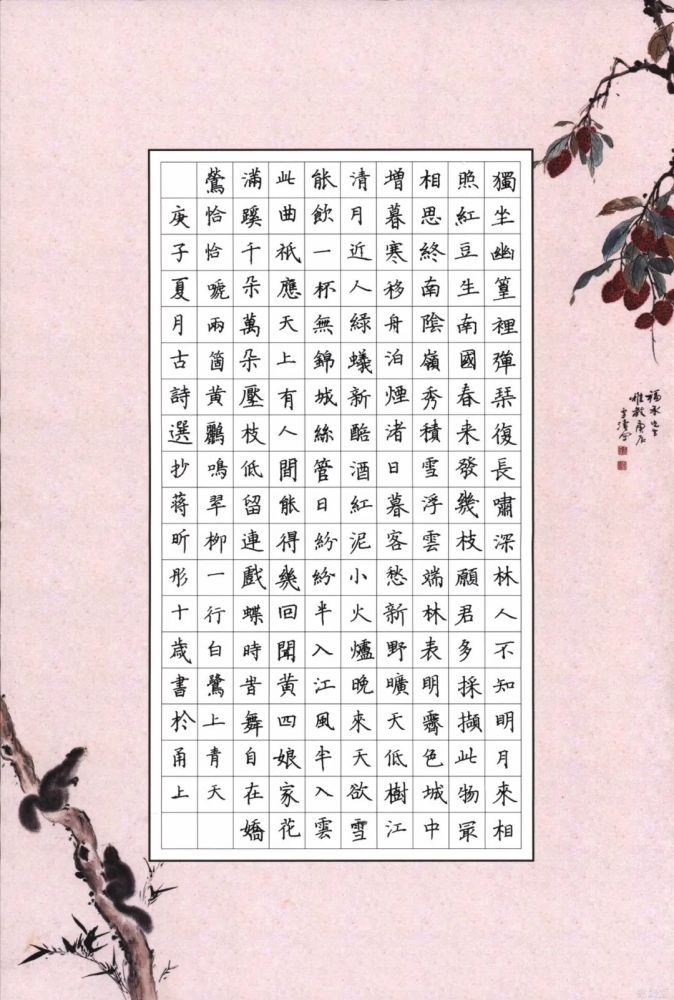 獨坐幽篁裡彈琹復長嘯深林人不知明月來相
照紅豆生南國春来發幾枝願君多採擷此物㝡
相思終南陰嶺秀積雪浮雲端林表明霽色城中
增暮寒移舟泊煙渚日暮客愁新野曠天低樹江
清月近人綠蟻新醅酒紅泥小火爐晚來天欲雪
能飲一杯無錦城絲管日紛紛半入江風半入雲
此曲祇應天上有人間能得幾回聞黄四娘家花
滿蹊千朵萬朵壓枝低留連戲蝶時旹舞自在嬌
鶯恰恰嗁兩箇黄鸝鳴翠柳一行白鷺上青天
庚子夏月古詩選抄蔣昕彤十歲書於甬上